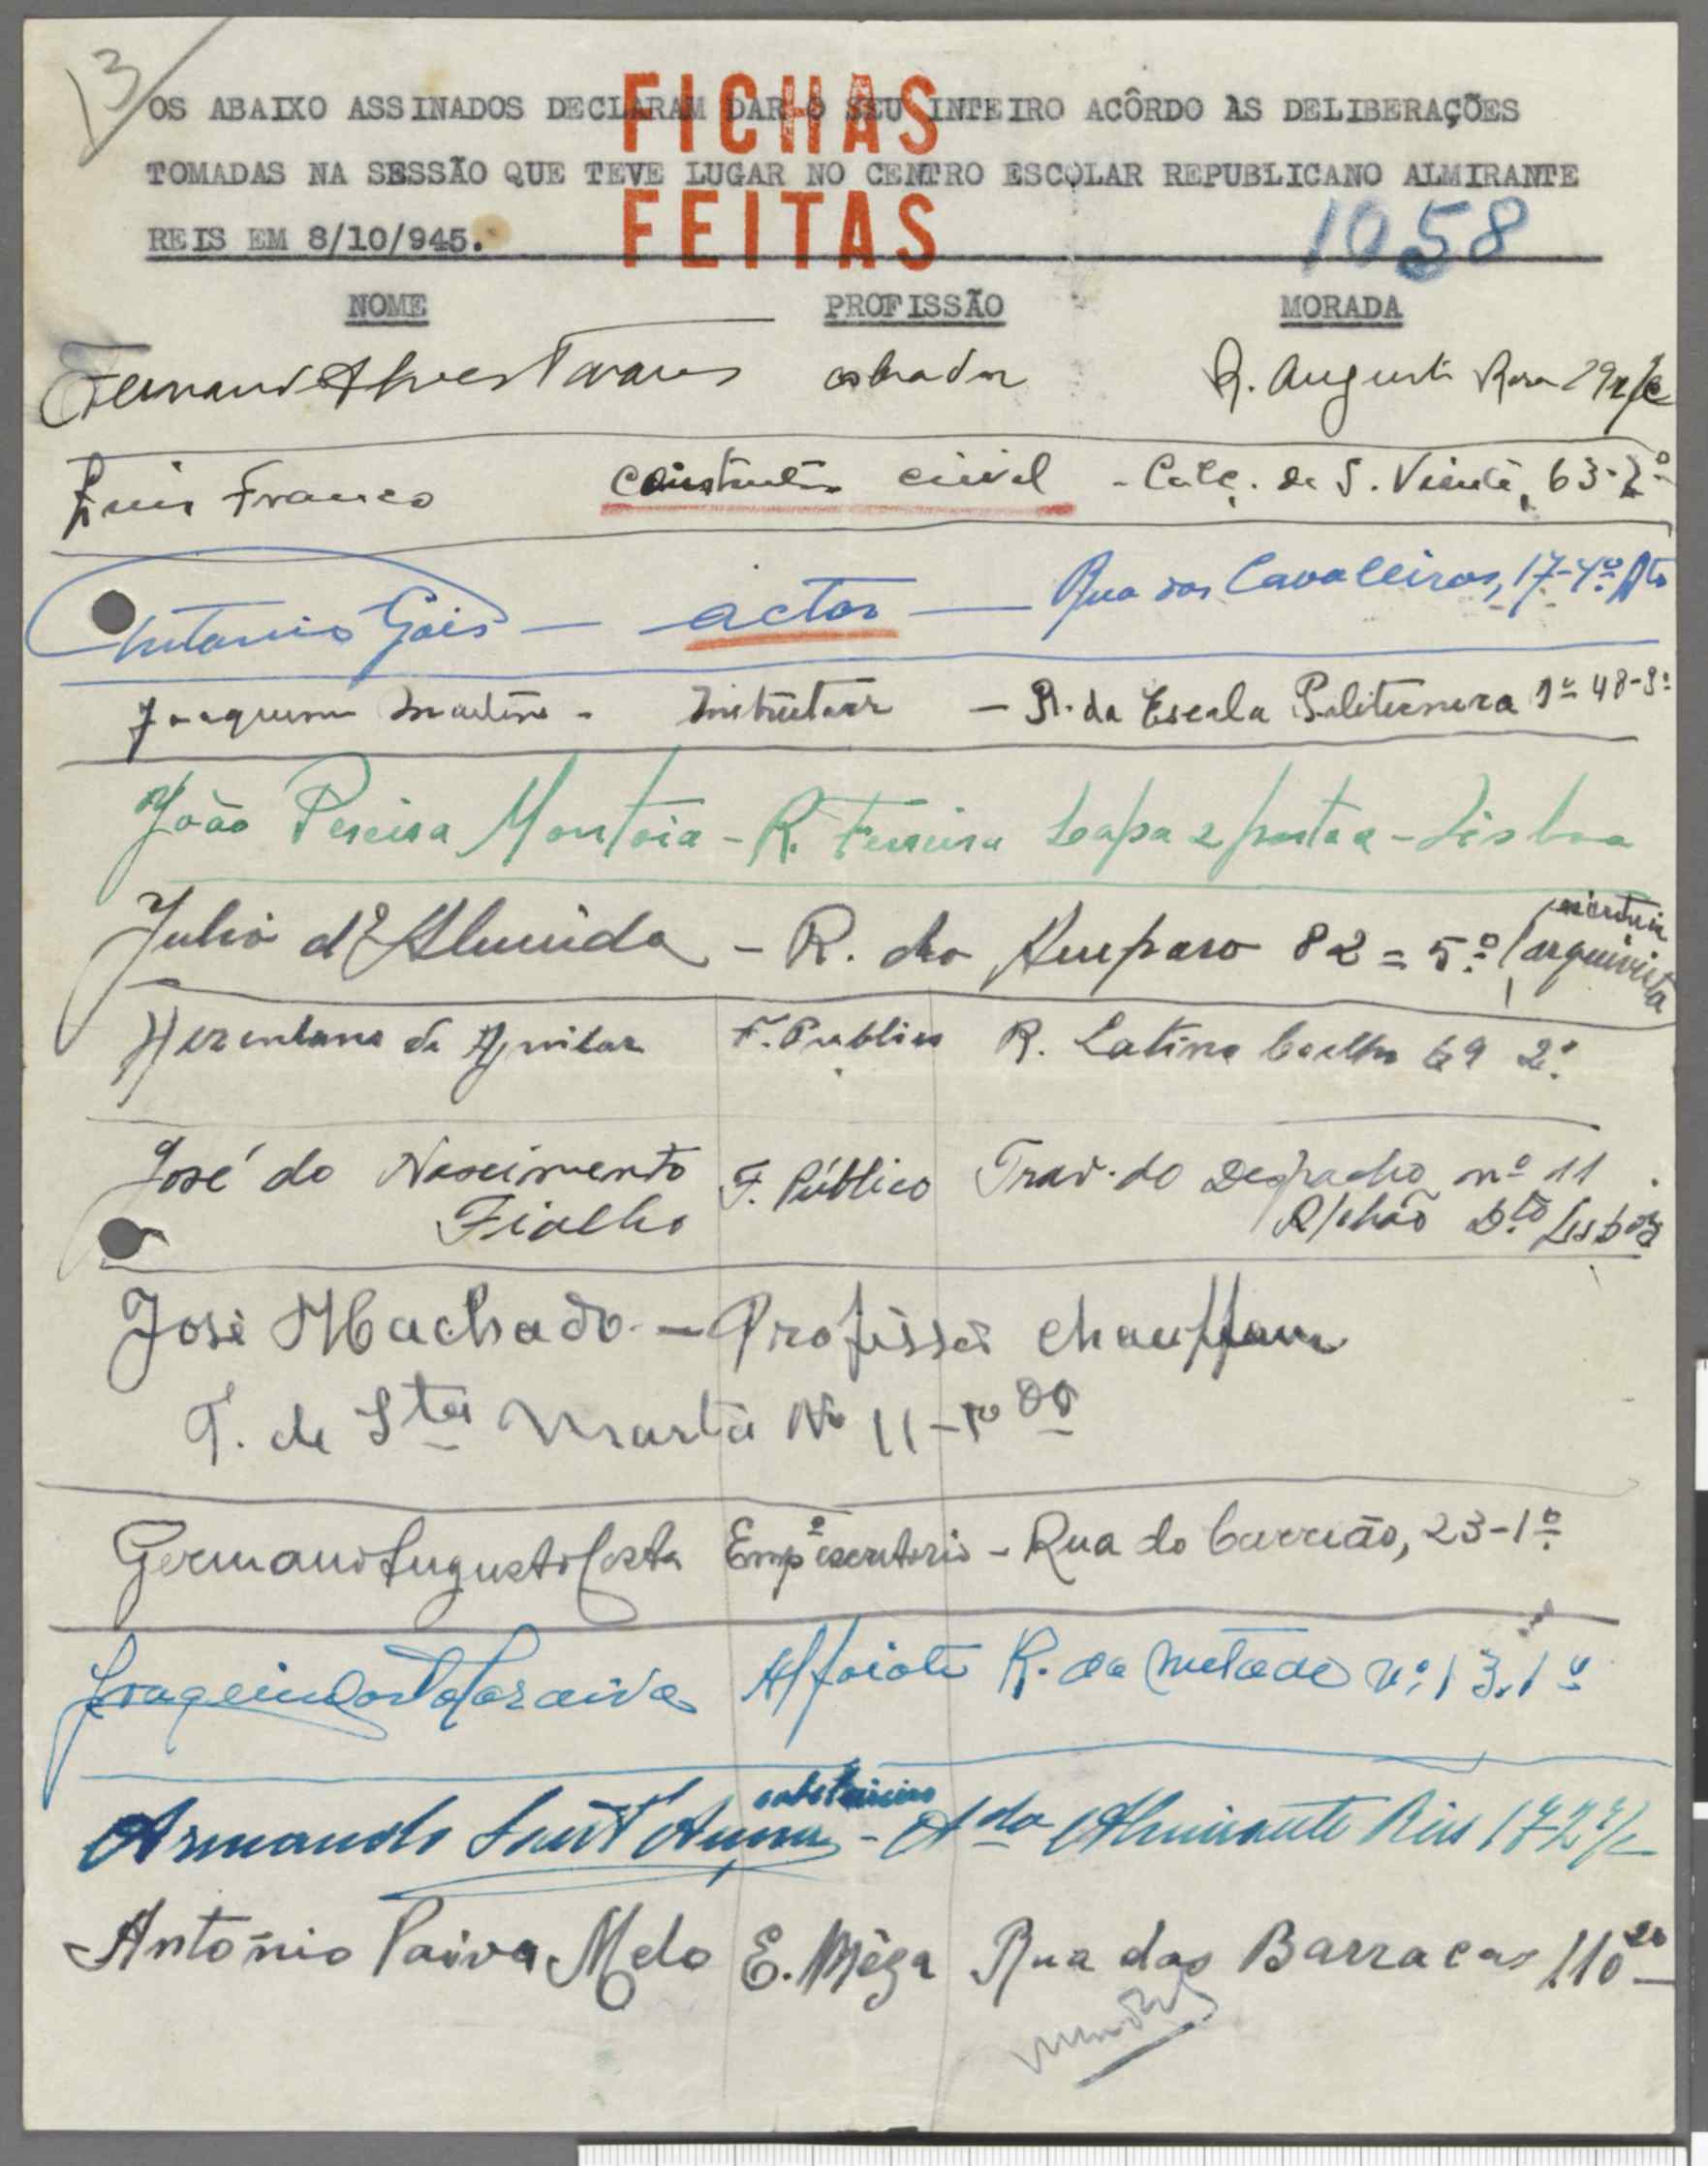 13
OS ABAIXO ASSINADOS DECLARAM DAR O SEU INTEIRO ACÔRDO ÀS DELIBERAÇÕES
TOMADAS NA SESSÃO QUE TEVE LUGAR NO CENTRO ESCOLAR REPUBLICANO ALMIRANTE
REIS EM 8/10/945.
FICHAS
FEITAS
1058
NOME PROFISSÃO MORADA
Fernando Alves Tavares cobrador R. Augusto Rosa 29 r/c
Luis Franco construtor civil - Calç. de S. Vicente, 63-2º
Antonio Gois — actor — Rua dos Cavaleiros, 17-4º Dto
Joaquim Martins - - R. da Escola Politecnica nº 48-3º
João Pereira Montoia - R. Ferreira Lapa 2 porta a - Lisboa
Julio d'Almeida - R. do Amparo 82 = 5º
arquivista
Herculano de Aguilar F. Publico R. Latino Coelho 69 2º
José do Nascimento F. Público Trav. do Despacho nº 11
Fialho R/chão Dto Lisboa
José Machado - Profissão chauffeur
T. de Sta Marta No 11-
Germano Augusto Costa Empº escritorio - Rua do Carrião, 23-1º
Joaquim Saraiva Alfaiate R. da Metade nº 13.1º
Armando Sant'Anna - Ada Almirante Reis 17-2 r/c
António Paiva Melo E. Mêza Rua das Barracas 110